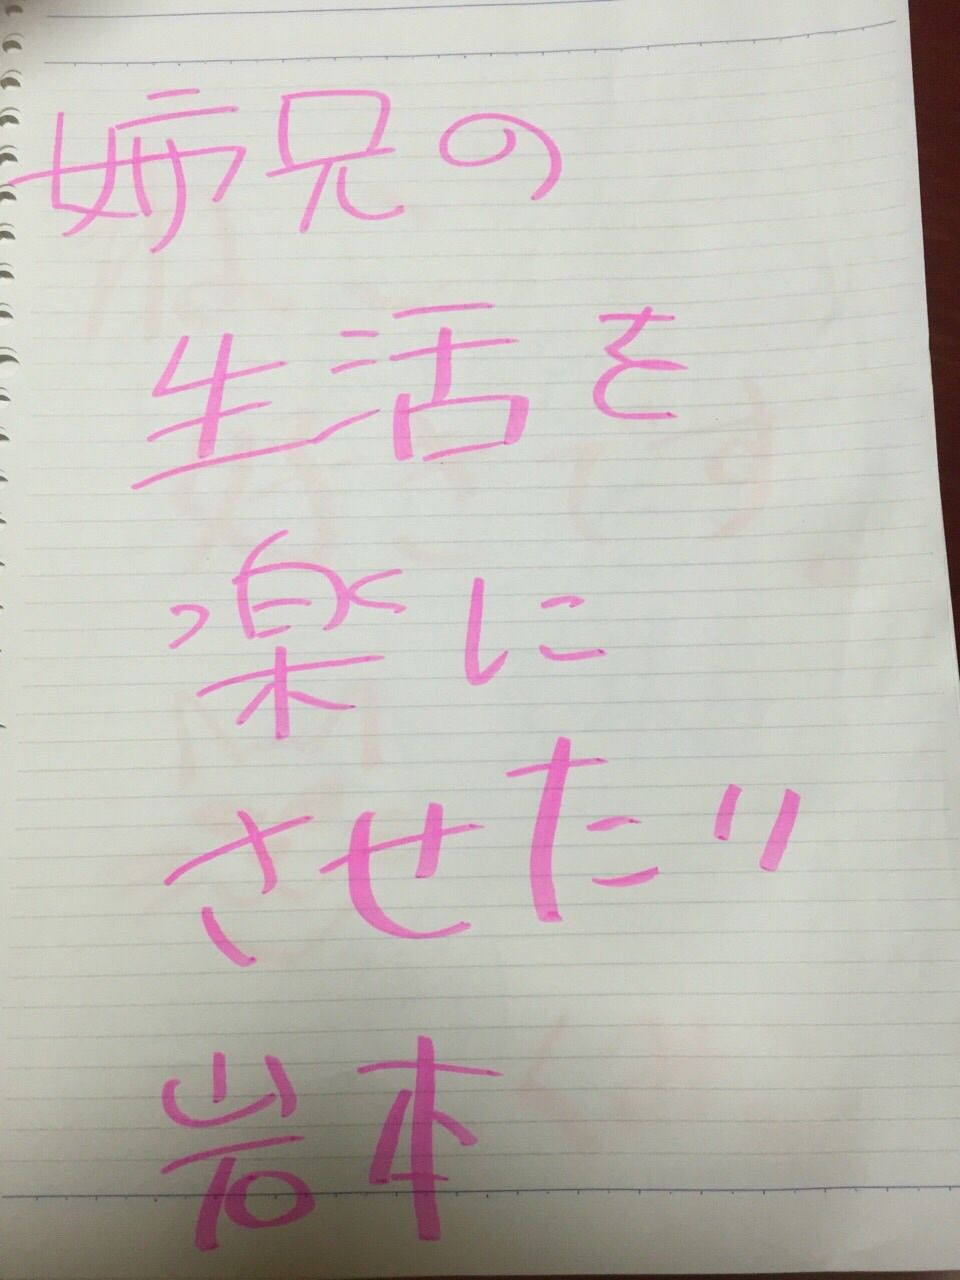 姉兄の
生活を
楽に
させたい
岩本